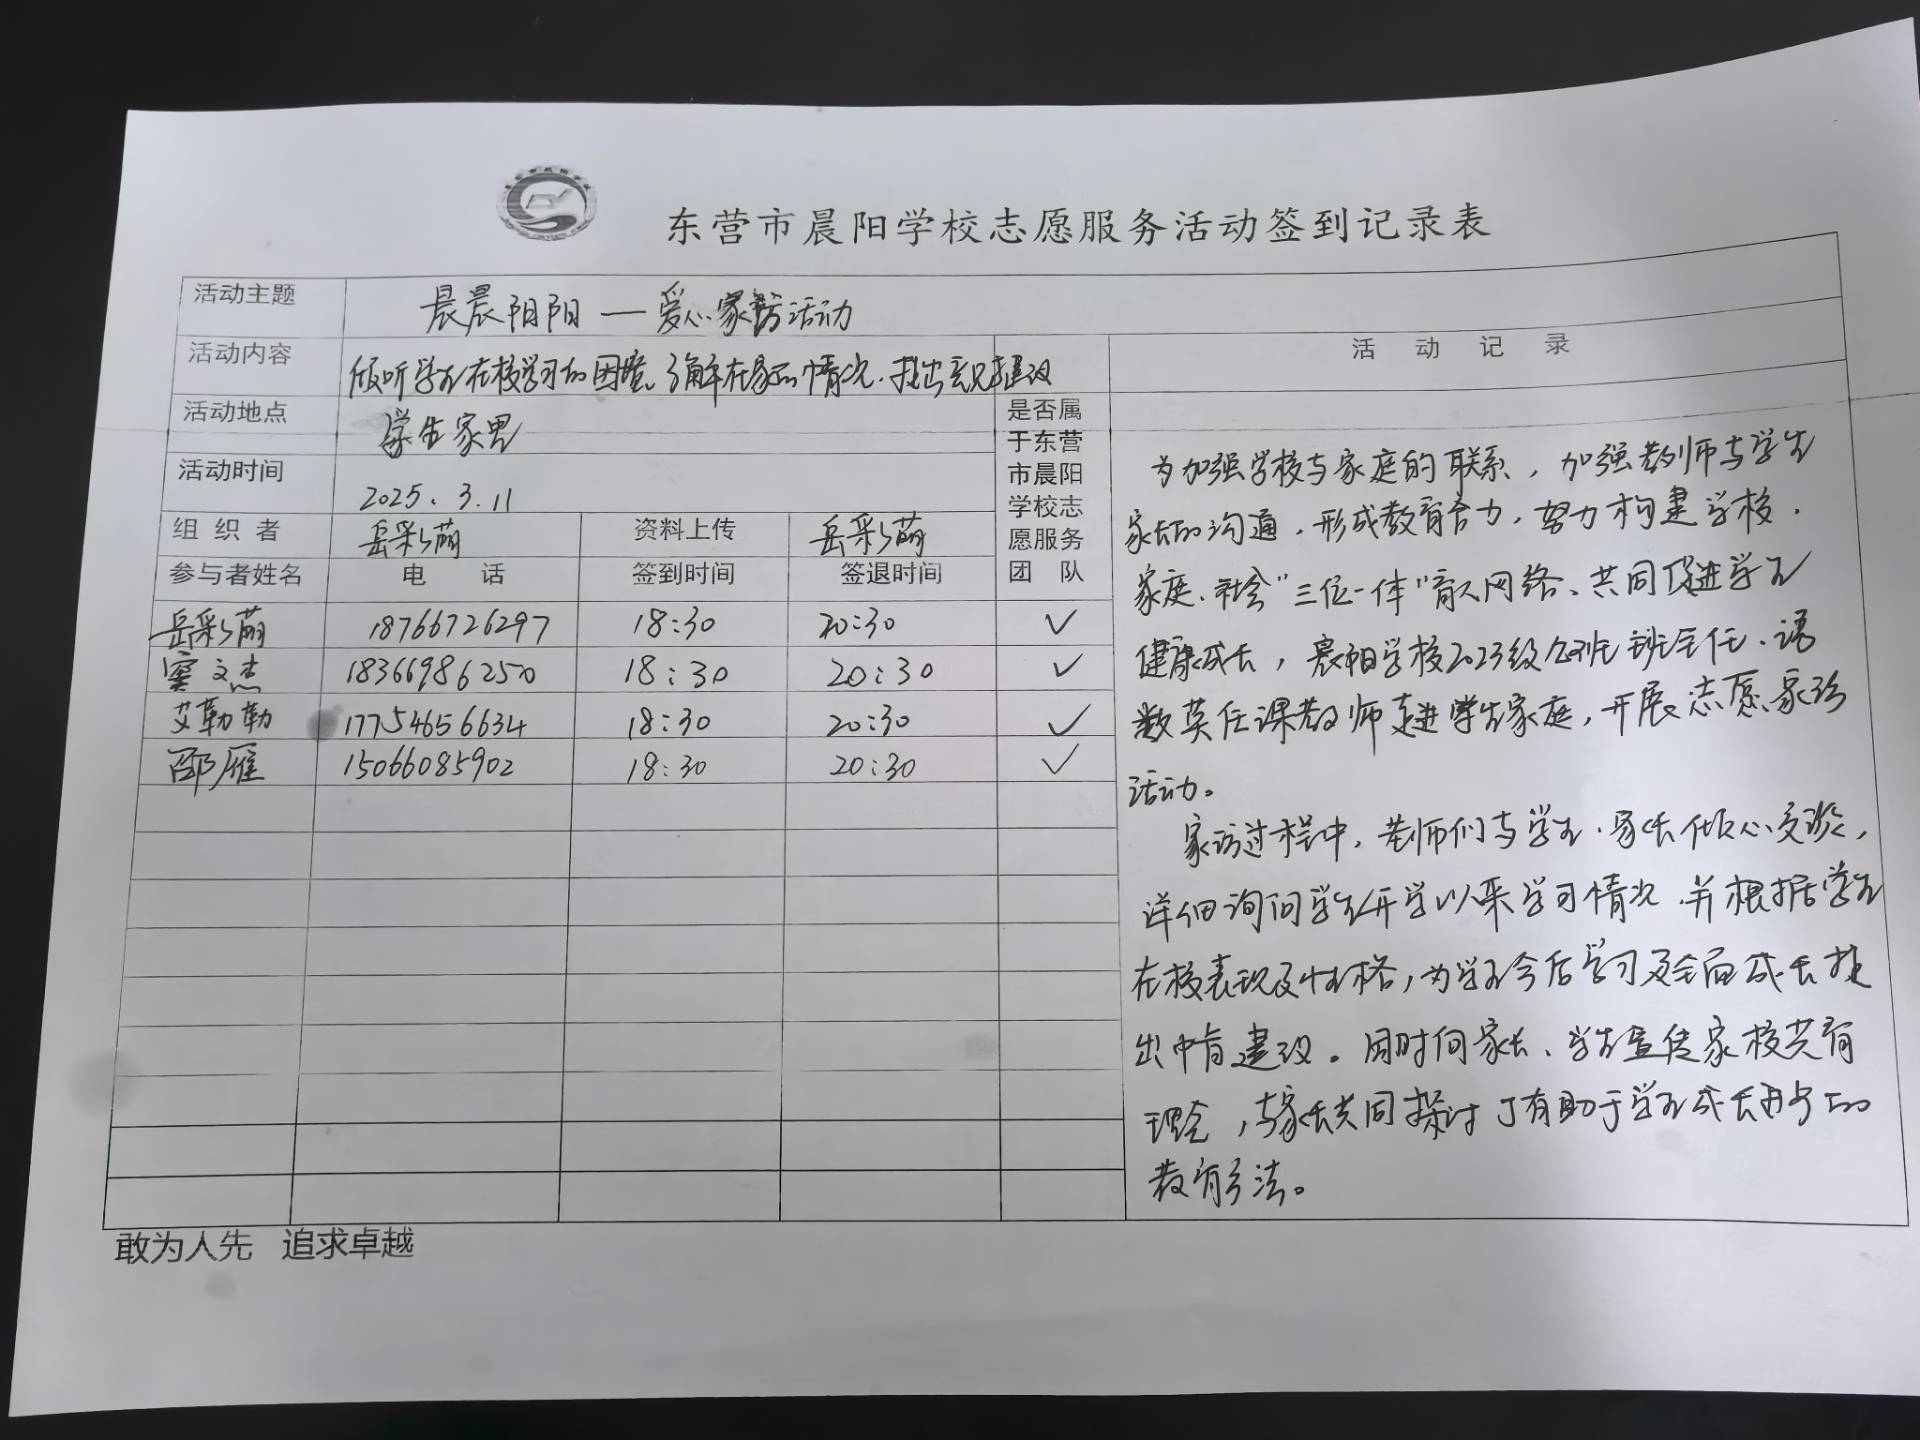 东营市晨阳学校志愿服务活动签到记录表
活动主题 晨晨阳阳 — 爱心家访活动
活动内容 倾听学生在校学习的困难、了解在家的情况、提出意见建议
活动地点 学生家里
活动时间 2025.3.11
组织者 岳彩萌 资料上传 岳彩萌
参与者姓名 电话 签到时间 签退时间 是否属于东营市晨阳学校志愿服务团队
岳彩萌 18766726297 18:30 20:30 ✓
窦文杰 18366986250 18:30 20:30 ✓
艾勒勒 17754656634 18:30 20:30 ✓
邵雁 15066085902 18:30 20:30 ✓
活动记录
为加强学校与家庭的联系，加强教师与学生
家长的沟通，形成教育合力，努力构建学校、
家庭、社会“三位一体”育人网络、共同促进学生
健康成长，晨阳学校2023级班班主任、语
数英任课教师走进学生家庭，开展志愿家访
活动。
家访过程中，老师们与学生、家长倾心交谈，
详细询问学生开学以来学习情况，并根据学生
在校表现及性格，为学生今后学习及全面成长提
出中肯建议。同时向家长、学生宣传家校共育
理念，与家长共同探讨了有助于学生成长进步的
教育方法。
敢为人先 追求卓越